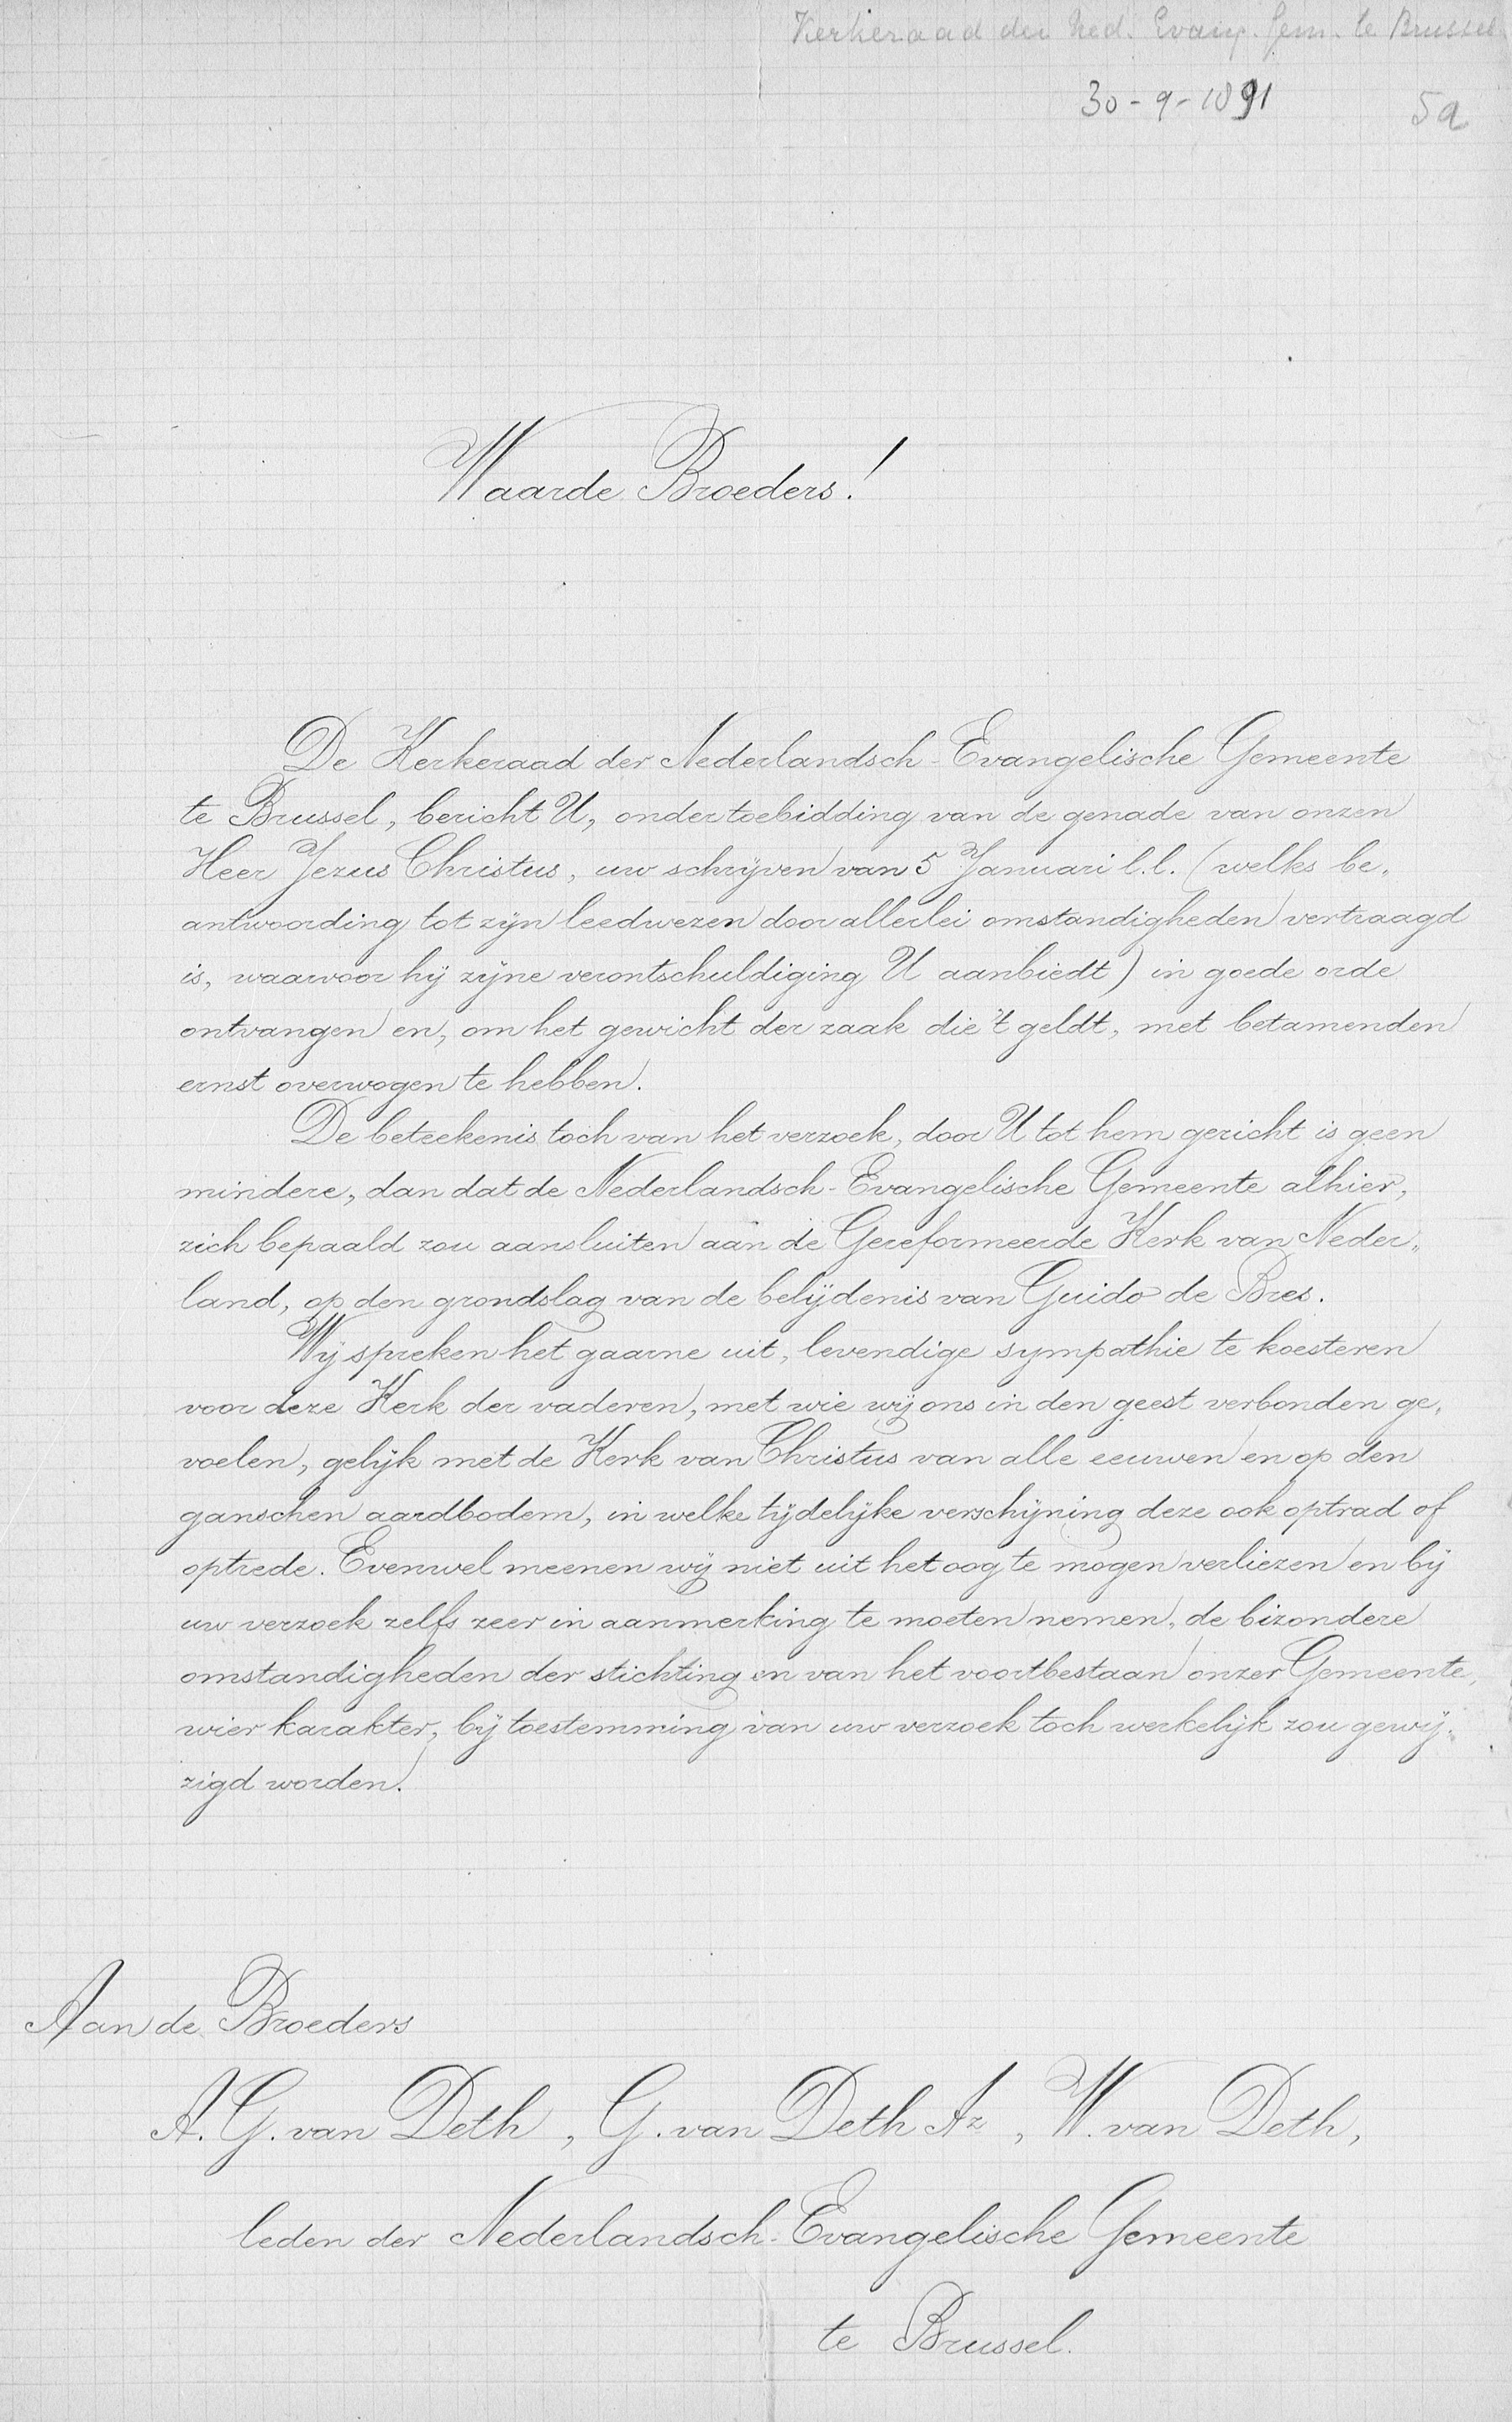 Kerkeraad der Ned. Evang. Gem. te Brussel
30-9-1891
5a
Waarde Broeders!
De Kerkeraad der Nederlandsch-Evangelische Gemeente
te Brussel, bericht U, onder toebidding van de genade van onzen
Heer Jezus Christus, uw schrijven van 5 Januari l.l. (welks be„
antwoording tot zijn leedwezen door allerlei omstandigheden vertraagd
is, waarvoor hij zijne verontschuldiging U aanbiedt) in goede orde
ontvangen en, om het gewicht der zaak die 't geldt, met betamenden
ernst overwogen te hebben.
De beteekenis toch van het verzoek, door U tot hem gericht is geen
mindere, dan dat de Nederlandsch-Evangelische Gemeente alhier,
zich bepaald zou aansluiten aan de Gereformeerde Kerk van Neder„
land, op den grondslag van de belijdenis van Guido de Bres.
Wij spreken het gaarne uit, levendige sympathie te koesteren
voor deze Kerk der vaderen, met wie wij ons in den geest verbonden ge„
voelen, gelijk met de Kerk van Christus van alle eeuwen en op den
ganschen aardbodem, in welke tijdelijke verschijning deze ook optrad of
optrede. Evenwel meenen wij niet uit het oog te mogen verliezen en bij
uw verzoek zelfs zeer in aanmerking te moeten nemen, de bizondere
omstandigheden der stichting en van het voortbestaan onzer Gemeente,
wier karakter, bij toestemming van uw verzoek toch werkelijk zou gewij„
zigd worden.
Aan de Broeders
A. G. van Deth, G. van Deth Az, W. van Deth,
leden der Nederlandsch-Evangelische Gemeente
te Brussel.